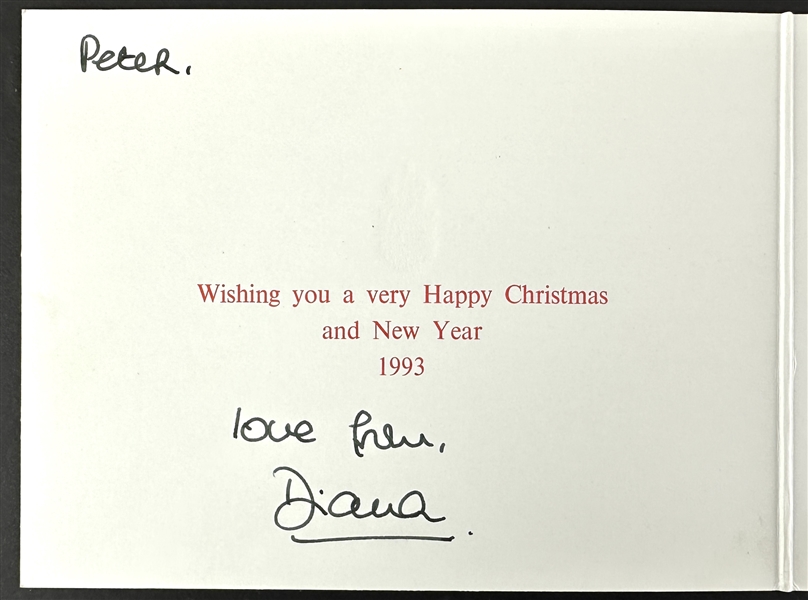 Peter.
Wishing you a very Happy Christmas
and New Year
1993
love from,
Diana.